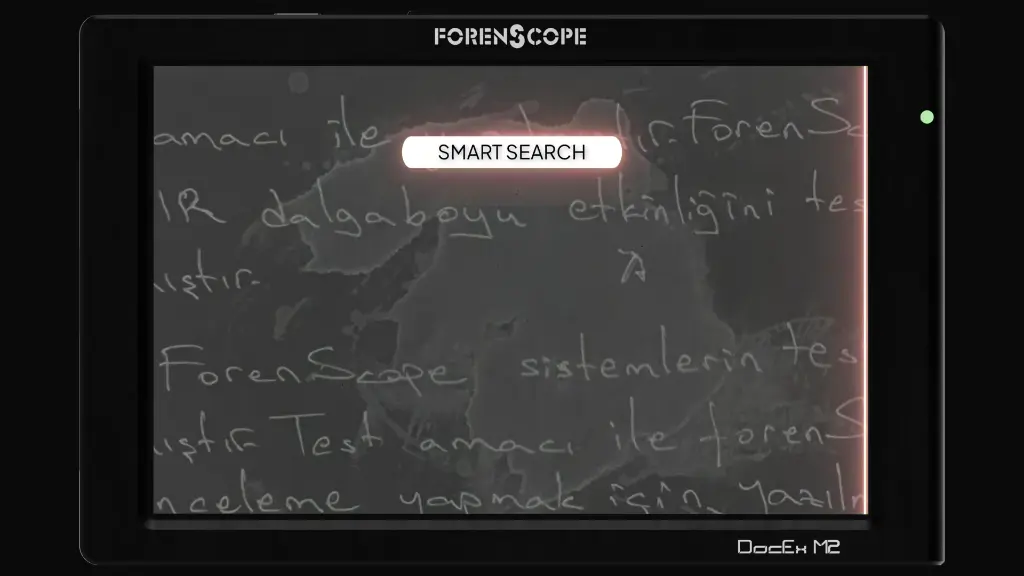 FORENSCOPE
amacı ile
ır. ForenSc
SMART SEARCH
IR dalgaboyu etkinliğini tes
ıştır.
ForenScope sistemlerin tes
ıştır Test amacı ile forenS
nceleme yapmak için yazılm
DocEx M2